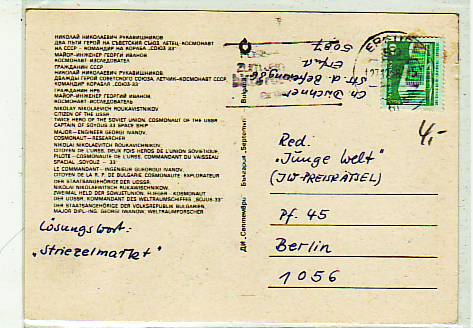 НИКОЛАЙ НИКОЛАЕВИЧ РУКАВИШНИКОВ
ДВА ПЪТИ ГЕРОЙ НА СЪВЕТСКИЯ СЪЮЗ, ЛЕТЕЦ-КОСМОНАВТ
НА СССР – КОМАНДИР НА КОРАБА „СОЮЗ 33"
МАЙОР-ИНЖЕНЕР ГЕОРГИ ИВАНОВ
КОСМОНАВТ-ИЗСЛЕДОВАТЕЛ
ГРАЖДАНИН СССР
НИКОЛАЙ НИКОЛАЕВИЧ РУКАВИШНИКОВ
ДВАЖДЫ ГЕРОЙ СОВЕТСКОГО СОЮЗА, ЛЕТЧИК-КОСМОНАВТ СССР
КОМАНДИР КОРАБЛЯ „СОЮЗ-33"
ГРАЖДАНИН НРБ
МАЙОР-ИНЖЕНЕР ГЕОРГИЙ ИВАНОВ
КОСМОНАВТ-ИССЛЕДОВАТЕЛЬ
NIKOLAY NIKOLAEVICH ROUKAVISTNIKOV
CITIZEN OF THE USSR
TWICE HERO OF THE SOVIET UNION, COSMONAUT OF THE USSR
CAPTAIN OF SOYOUS 33 SPACE SHIP
MAJOR – ENGINEER GEORGI IVANOV,
COSMONAUT – RESEARCHER
NIKOLAI NIKOLAEVITCH ROUKAVICHNIKOV,
CITOYEN DE L'URSS, DEUX FOIS HEROS DE L'UNION SOVIETIQUE,
PILOTE – COSMONAUTE DE L'URSS, COMMANDANT DU VAISSEAU
SPACIAL „SOYOUZ – 33"
LE COMMANDANT – INGENIEUR GUEORGUI IVANOV,
CITOYEN DE LA R. P. DE BULGARIE, COSMONAUTE, EXPLORATEUR
DER STAATSANGEHÖRIGE DER UDSSR
NIKOLAI NIKOLAEVITSCH RUKAWISCHNIKOW,
ZWEIMAL HELD DER SOWJETUNION, FLIEGER – KOSMONAUT
DER UDSSR, KOMMANDANT DES WELTRAUMSCHIFFES „SOJUS-33"
DER STAATSANGEHÖRIGE DER VOLKSREPUBLIK BULGARIEN,
MAJOR DIPL.-ING. GEORG IWANOW, WELTRAUMFORSCHER
Lösungswort:
„Striezelmarkt"
ДИ „Септември" България „Septemvri" Bulgaria
Ch. Büchner
Erfurt
5087
ERFURT
4,-
Red.
„Junge Welt"
(JW-PREISRÄTSEL)
Pf. 45
Berlin
1056